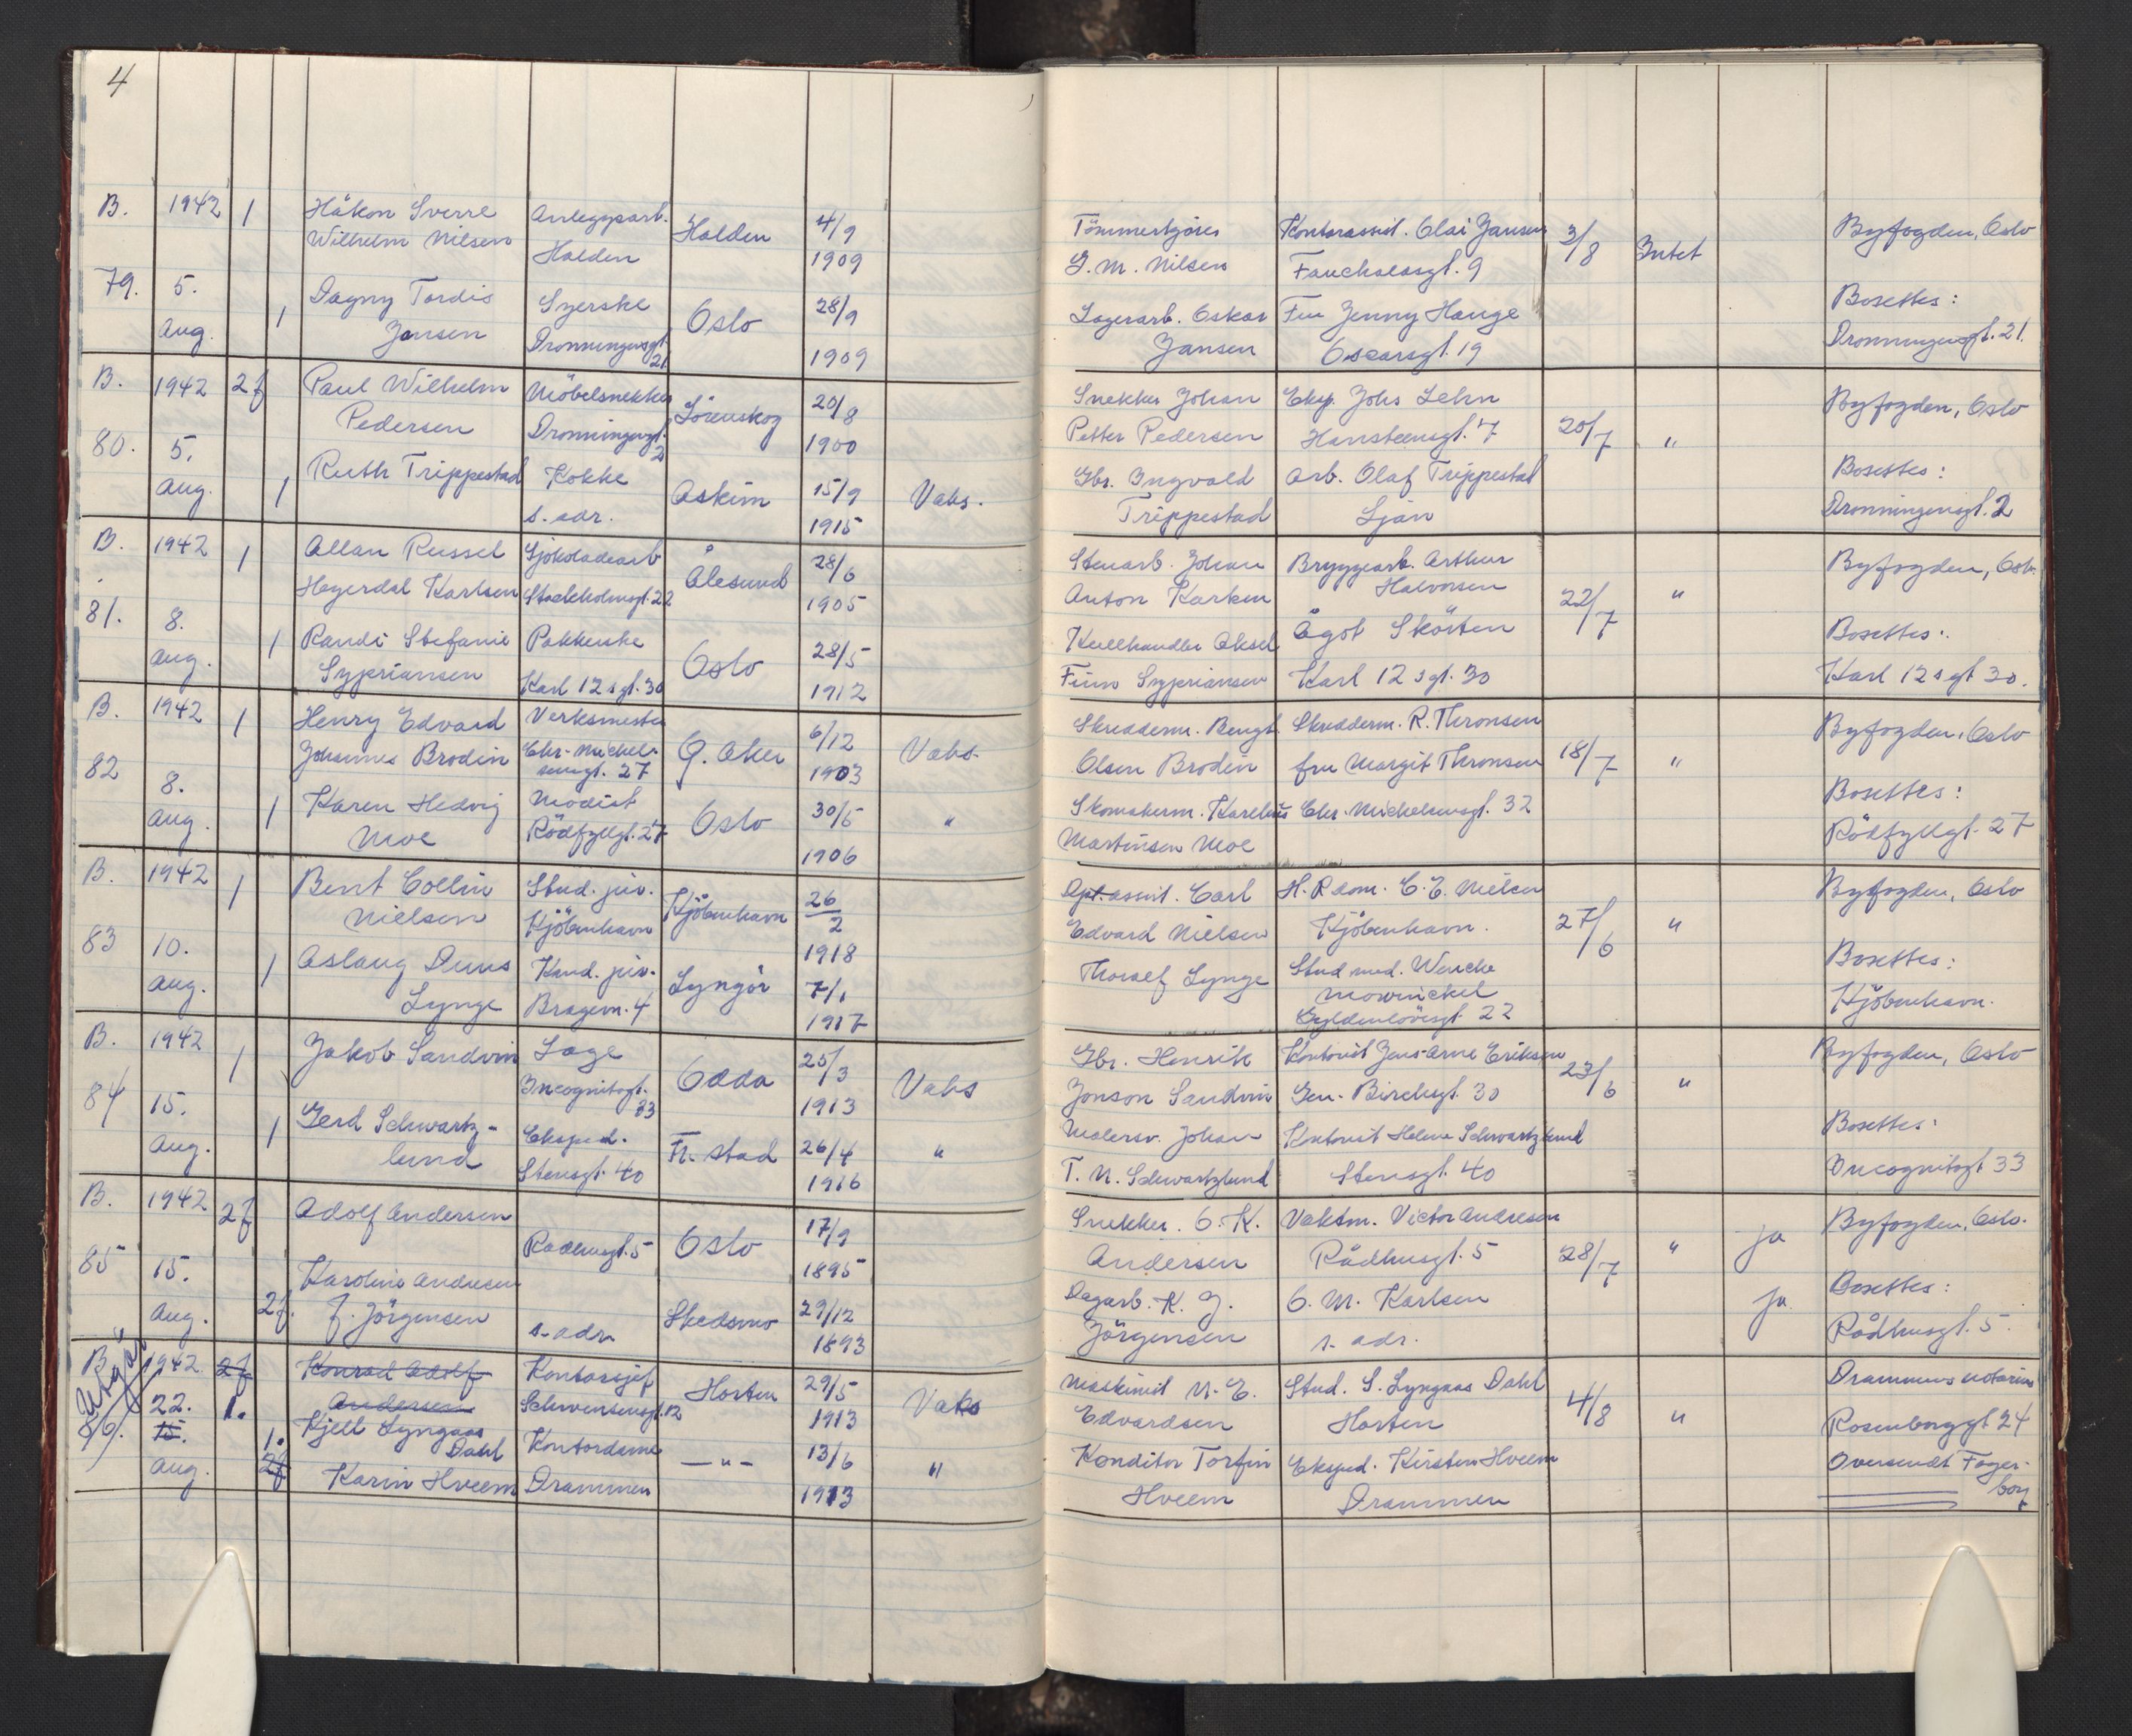 4
B. 1942 1 Håkon Sverre Anleggsarb. Halden 4/9 Tømmerkjører Kontorassist. Olai Jansen 3/8 Intet Byfogden, Oslo
Wilhelm Nilsen Halden 1909 G. M. Nilsen Fauchaldsgt. 9
79. 5. Dagny Tordis Syerske Oslo 28/9 Lagerarb. Oskar Fru Jenny Hauge Bosettes:
Aug. 1 Jansen Dronningensgt. 21 1909 Jansen Oscarsgt. 19 Dronningensgt. 21.
B. 1942 2f Paul Wilhelm Möbelsnekker Lörenskog 20/8 Snekker Johan Eksp. Johs Lehn 20/7 " Byfogden, Oslo
Pedersen Dronningensgt. 2 1900 Petter Pedersen Hansteensgt. 7
80. 5. Ruth Trippestad Kokke Askim 15/9 Vaks. Gbr. Ingvald Arb. Olaf Trippestad Bosettes:
Aug. 1 s. adr. 1915 Trippestad Ljan Dronningensgt. 2
B. 1942 1 Allan Russel Sjokoladearb Ålesund 28/6 Stenarb. Johan Bryggearb. Arthur Byfogden, Oslo
Hegerdal Karlsen Stockholmsgt. 22 1905 Anton Karlsen Halvorsen 22/7 "
81. 8. Randi Stefanie Pakkerske Oslo 28/5 Kullhandler Aksel Ågot Skörten Bosettes:
Aug. 1 Sypriansen Karl 12 s gt. 30 1912 Finn Sypriansen Karl 12 s gt. 30 Karl 12 s gt 30.
B. 1942 1 Henry Edvard Verksmester Ö. Aker 6/12 Vaks. Skredderm. Bengt Skredderm. R. Thronsen 18/7 " Byfogden, Oslo
Johannes Brodin Chr. Michelsensgt. 27 1903 Olsen Brodin fru Margit Thronsen
82 8. Karen Hedvig Modist Oslo 30/5 " Skomakerm. Karelius Chr. Michelsensgt. 32 Bosettes:
Aug. 1 Moe Rödfyllgt. 27 1906 Martinsen Moe Rödfyllgt. 27
B. 1942 1 Bent Collin Stud. jur. Kjöbenhavn 26/2 Dpt. assist. Carl H. R. dom. C. E. Nielsen Byfogden, Oslo
Nielsen Kjöbenhavn 1918 Edvard Nielsen Kjöbenhavn. 27/6 "
83 10. Aslaug Duus Kand. jur. Lyngör 7/1 Thoralf Lynge Stud. med. Wenche Bosettes:
Aug. 1 Lynge Bragern. 4 1917 Mowinckel Kjöbenhavn.
Gyldenlövesgt. 22
B. 1942 1 Jakob Sandvin Lage Odda 25/3 Vaks Gbr. Henrik Kontorist Jens-Arne Eriksen 23/6 " Byfogden, Oslo
Incognitogt. 33 1913 Jonson Sandvin Gen. Birchsgt. 30
84 15. Gerd Schwartz- Eksped. Fr. stad 26/4 " Malersv. Johan Kontorist Helene Schwartzlund Bosettes:
Aug. 1 lund Stensgt. 40 1916 T. N. Schwartzlund Stensgt. 40 Incognitogt 33
B. 1942 2f Adolf Andersen Rådhusgt. 5 Oslo 17/9 Snekker. O. K. Vaktm. Victor Andresen " ja Byfogden, Oslo.
1895 Andersen Rådhusgt. 5 28/7
85 15. Karoline Andresen Skedsmo 29/12 Dagarb. K. J. O. M. Karlsen ja Bosettes:
Aug. 2f. f. Jörgensen s. adr. 1893 Jörgensen s. adr. Rådhusgt. 5.
Utgår
B. 1942 2f Konrad Adolf Kontorsjef Horten 29/5 Vaks Maskinist N. E. Stud. S. Lyngaas Dahl 4/8 " Drammens notarius
86. 22. 1. Andersen Schwensensgt. 12 1913 Edvardsen Horten Rosenborggt 24
15. 1. Kjell Lyngaas Dahl Kontordame — " — 13/6 " Konditor Torfin Eksped. Kirsten Hveem Oversendt Fager-
Aug. 2f Karin Hveem Drammen 1913 Hveem Drammen borg